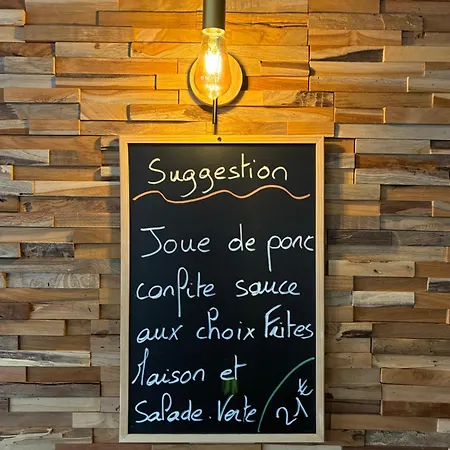 Suggestion
Joue de porc
confite sauce
aux choix Frites
Maison et
Salade. Verte
21€